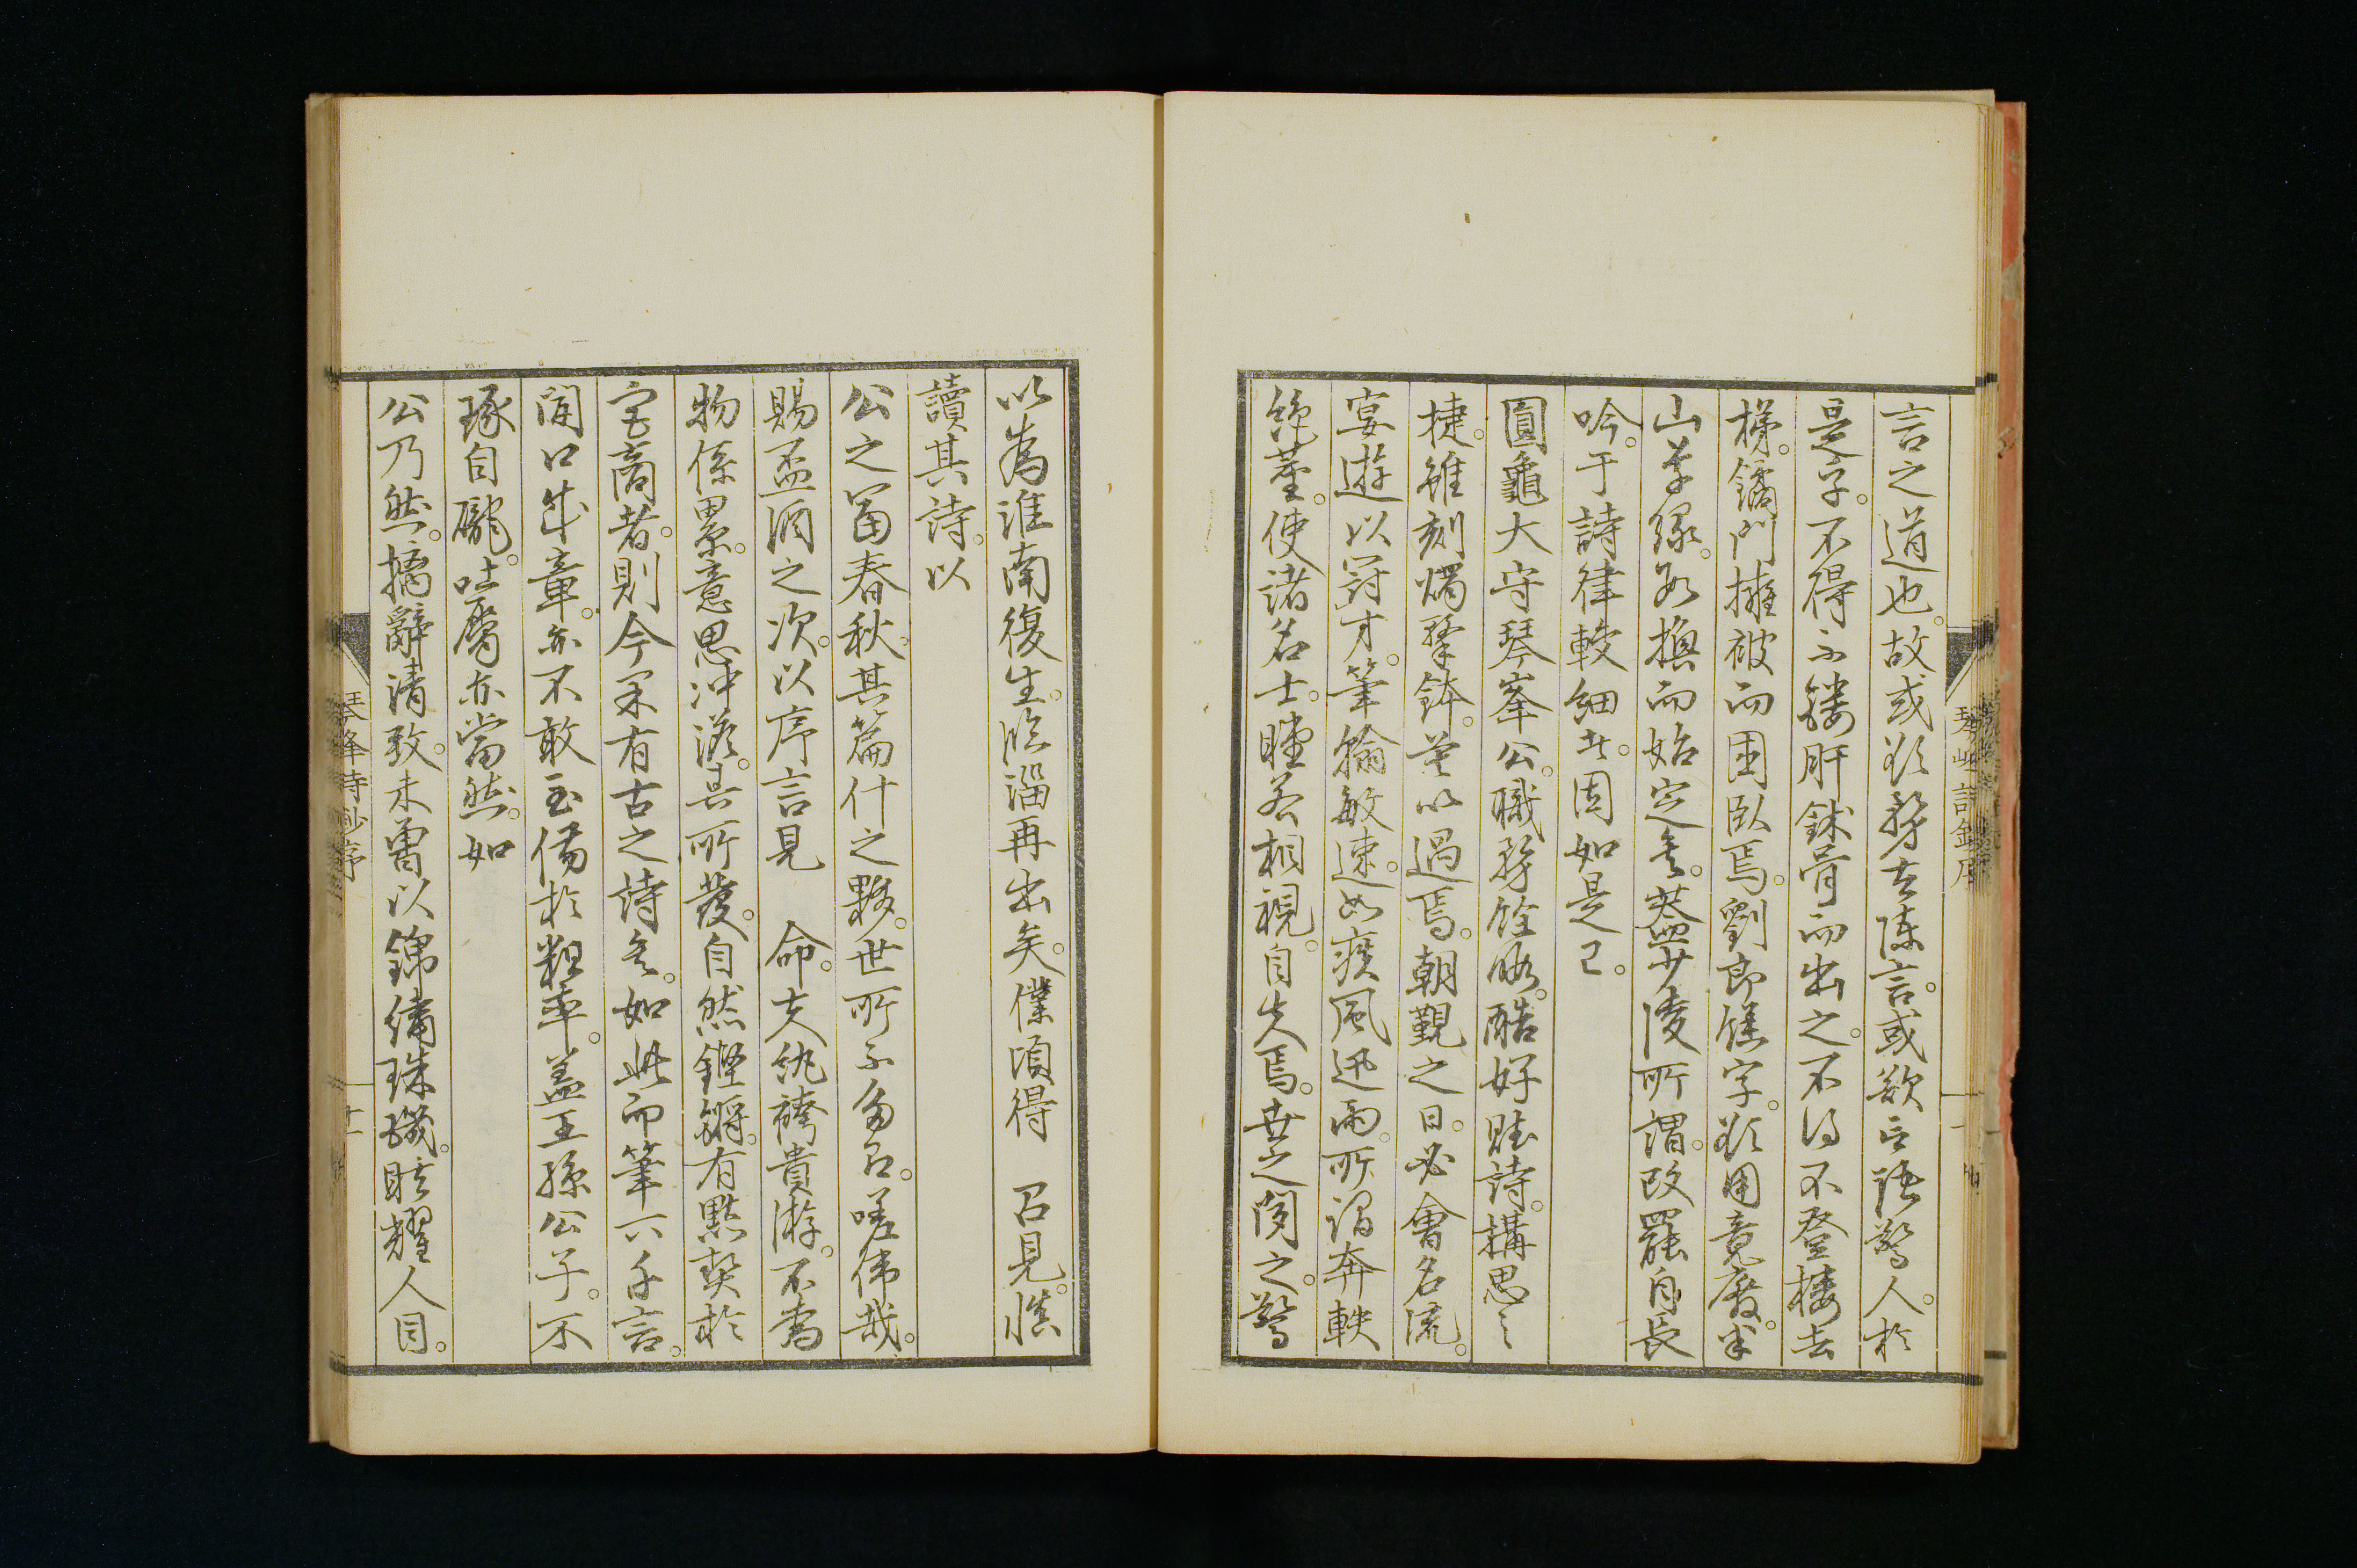 言之道也。故或欲務去陳言。或欲一語驚人。於
是字。不得不鏤肝鉥胃而出之。不得不登樓去
梯。鐍門擁被而困臥焉。劉郎餻字。欲用竟廢。半
山草綠。必換而始定矣。蓋少陵所謂。改罷自長
吟。于詩律較細者。固如是已。
圓龜大守琴峯公。職務餘暇。酷好賦詩。搆思之
捷。雖刻燭擊鉢。莫以過焉。朝覲之日。必會名流。
宴遊以罰才。筆翰敏速。如疾風迅雨。所謂奔軼
絶塵。使諸名士。瞠若相視。自失焉。世之閱之。驚
以為淮南復生。臨淄再出矣。僕頃得 召見。惟
讀其詩。以
公之富春秋。其篇什之夥。世所不多見。嗟偉哉。
賜盃酒之次。以序言見 命。夫紈袴貴游。不為
物係累。意思冲澹。其所發。自然鏗鏘。有默契於
宮商者。則今罕有古之詩矣。如此而筆下千言。
開口成章。亦不敢至傷於粗率。蓋王孫公子。不
琢自礱。吐屬亦當然。如
公乃然。摛辭清致。未曾以錦繡珠璣。眩耀人目。
琴峰詩鈔序
十一